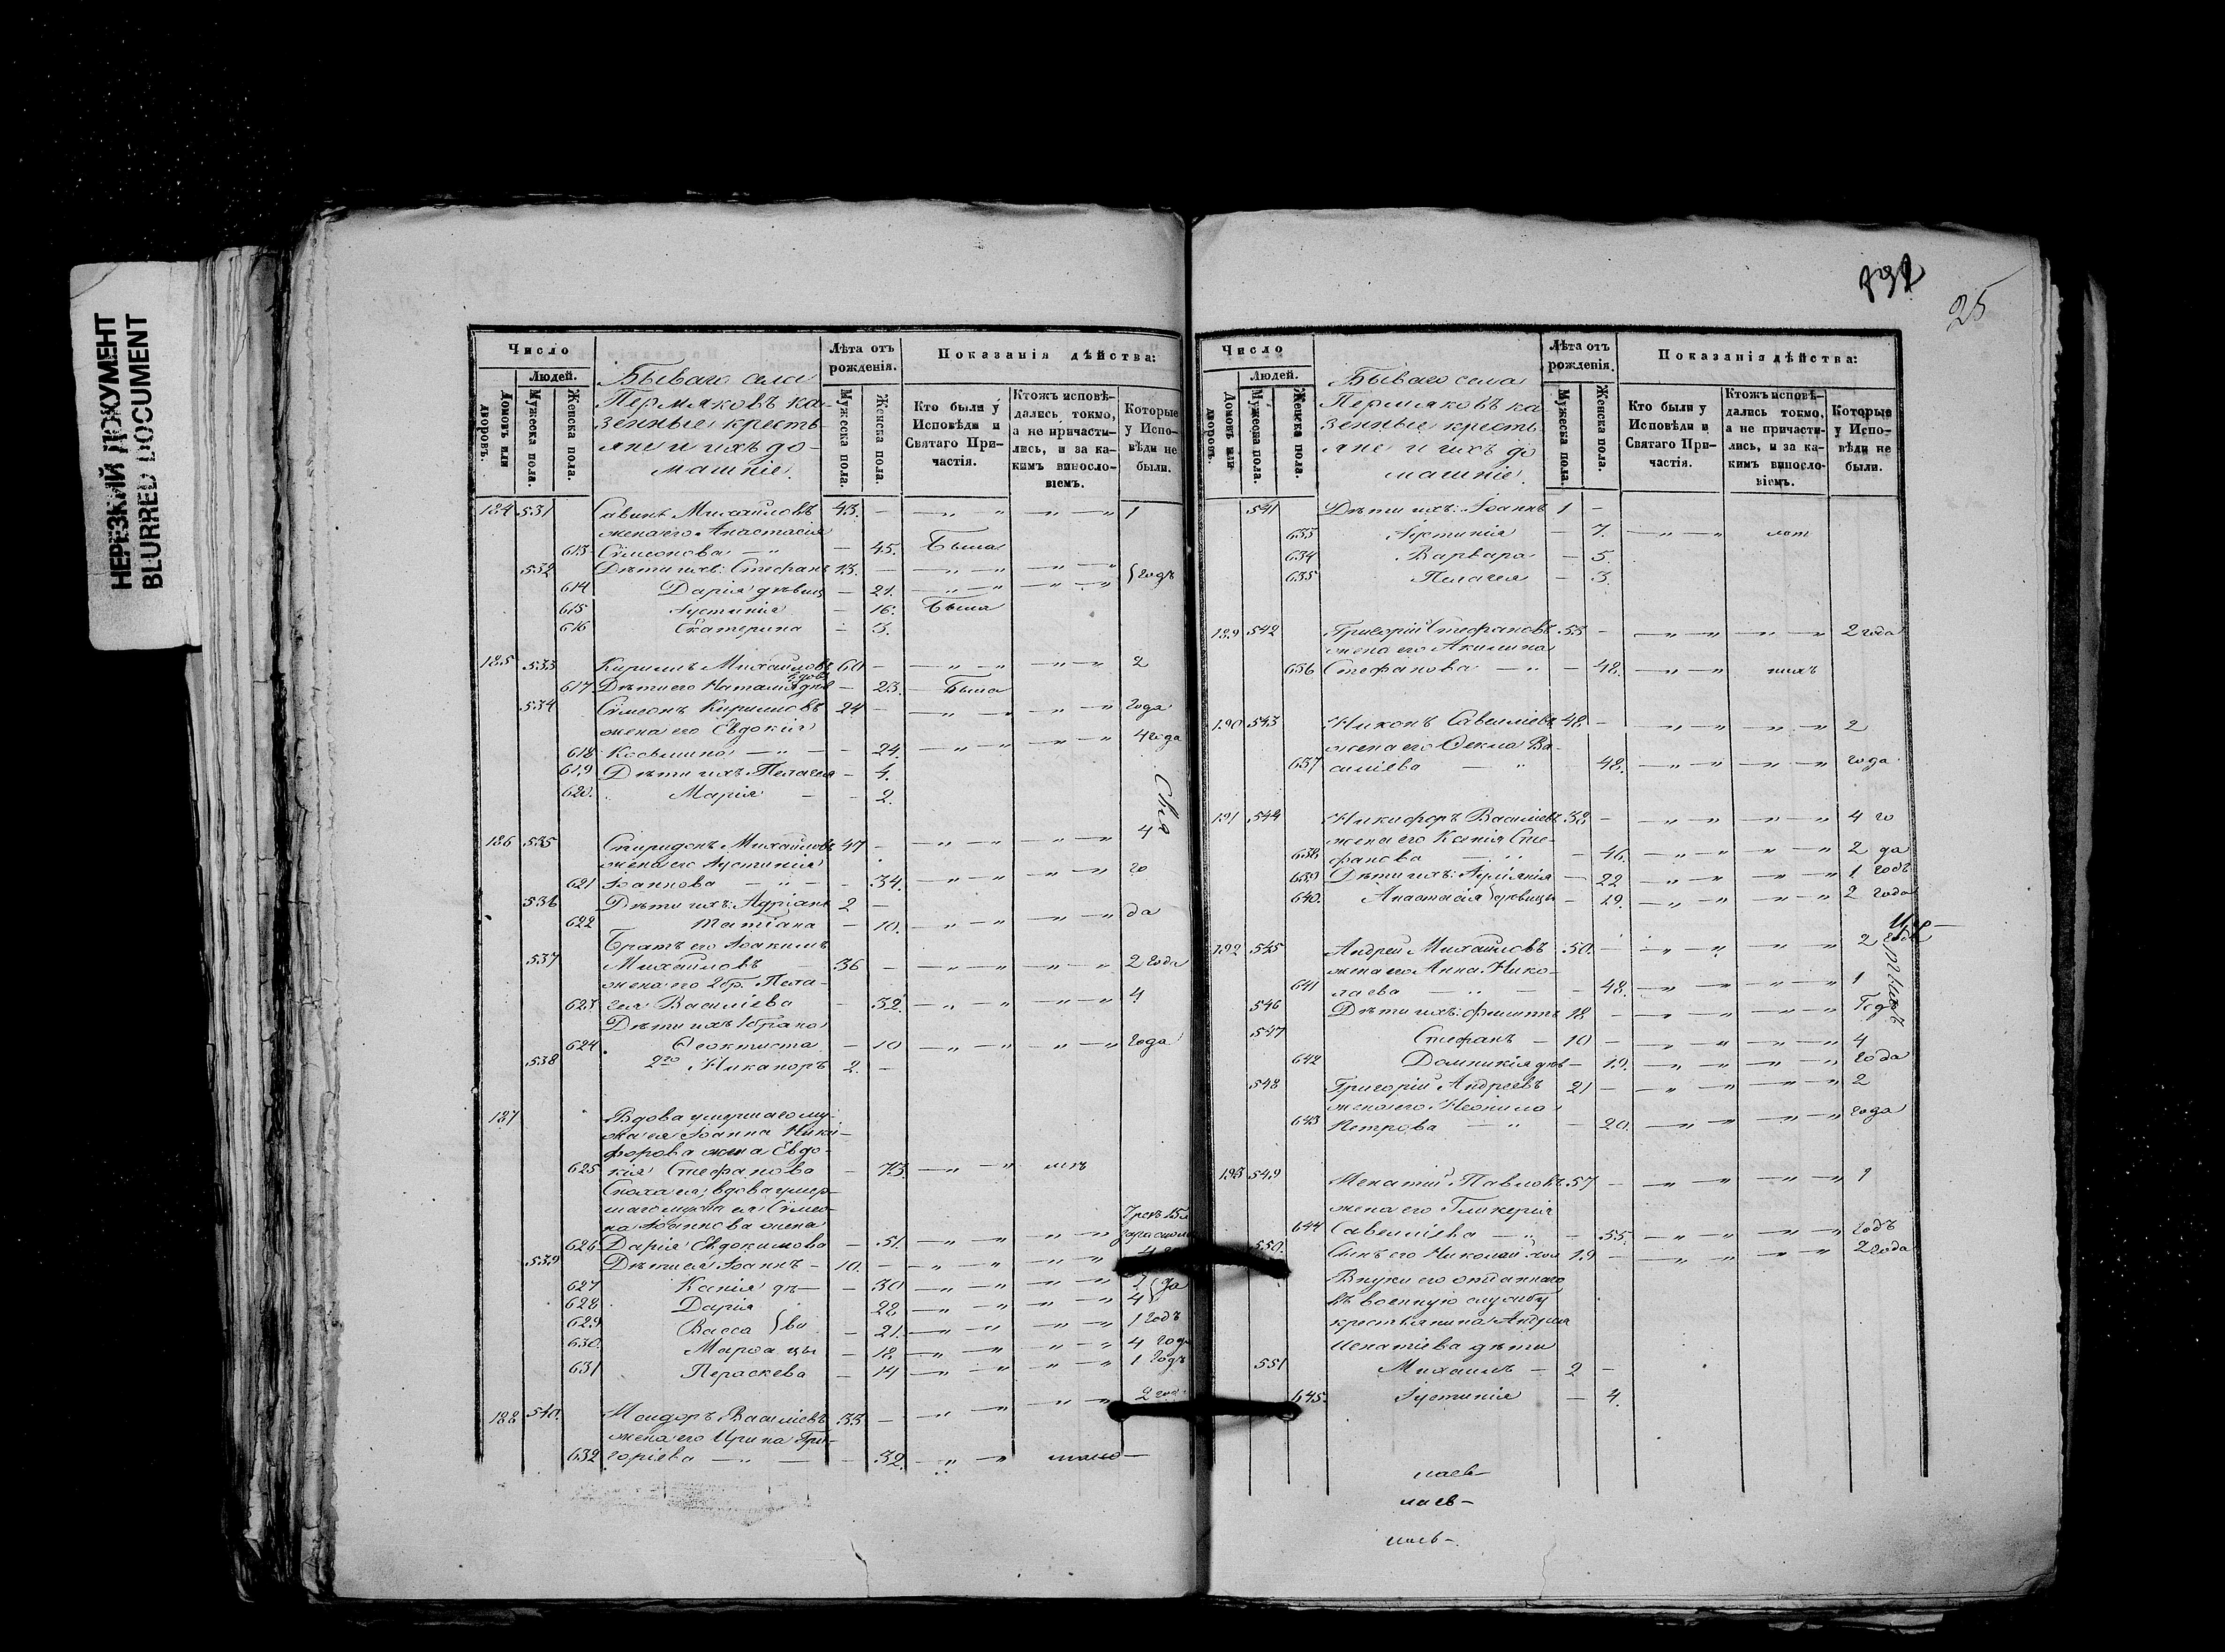 НЕРЕЗКИЙ ДОКУМЕНТ
BLURRED DOCUMENT
25
Число
Людей.
Домовъ или дворовъ.
Мужеска пола.
Женска пола.
Бываго села
Пермяковъ ка-
зенные кресть-
яне и ихъ до-
машніе.
Лѣта отъ рожденія.
Мужеска пола.
Женска пола.
Показанія дѣйства:
Кто были у Исповѣди и Святаго Причастія.
Ктожъ исповѣдались токмо, а не причастились, и за какимъ винословіемъ.
Которые у Исповѣди не были.
184 531 Савинъ Михайловъ 43. — 1
жена его Анастасія
613 Сѵмеонова — 45. Была
532 Дѣти ихъ: Стефанъ 13. — годъ
614 Дарія дѣвица — 21.
615 Іустинія — 16. Была
616 Екатерина — 3.
185 533 Кириллъ Михайловъ 60 — 2
617 Дѣти его Наталія — 23. Была
534 Сѵмеонъ Кирилловъ 24 — года
жена его Евдокія
618 Косьмина — 24. 4 года
619 Дѣти ихъ: Пелагея — 4.
620. Марія — 2.
186 535 Спиридонъ Михайловъ 47 — 4
жена его Іустинія
621 Іоаннова — 34. го
536 Дѣти ихъ: Адріанъ 2 —
622 Татіана — 10. да
Братъ его Іоакимъ
537 Михайловъ 36 — 2 года
жена его 2 бр. Пела-
623 гея Василіева — 32. 4
Дѣти ихъ 1 брака
624 Ѳеоктиста — 10 года
538 2го Никаноръ 2. —
187 Вдова умершаго му-
жа ея Іоанна Ники-
форова жена Евдо-
625 кія Стефанова — 73.
Сноха ея, вдова умер-
шаго мужа ея Сѵмео-
на Іоаннова жена
626 Дарія Евдокимова — 51.
539 Дѣти ея Іоаннъ — 10. —
627 Ксенія дѣ — 30
628 Дарія 22 4
629 Васса ви — 21. 1 годъ
630. Марѳа цы — 18 4 года
631 Параскева — 14 1 годъ
188 540. Исидоръ Василіевъ 33 — 2 года
жена его Ирина Гри-
632 горіева — 32.
Число
Людей.
Домовъ или дворовъ.
Мужеска пола.
Женска пола.
Бываго села
Пермяковъ ка
зенные кресть
яне и ихъ до
машніе.
Лѣта отъ рожденія.
Мужеска пола.
Женска пола.
Показанія дѣйства:
Кто были у Исповѣди и Святаго Причастія.
Ктожъ исповѣдались токмо, а не причастились, и за какимъ винословіемъ.
Которые у Исповѣди не были.
541 Дѣти ихъ: Іоаннъ 1 —
633 Іустинія — 7.
634 Варвара — 5.
635 Пелагея — 3.
189 542 Григорій Стефановъ 53 — 2 года
жена его Акилина
636 Стефанова — 48.
190 543 Никонъ Савеліевъ 48. — 2
жена его Ѳекла Ва-
637 силіева — 48. года
191 544 Никифоръ Василіевъ 38 — 4 го
жена его Ксенія Сте-
638 фанова — 46. 2 да
639 Дѣти ихъ: — 22 1 годъ
640. Анастасія дѣвицы — 19. 2 года
192 545 Андрей Михайловъ 50. — 2
жена его Анна Нико-
641 лаева — 48. 1
546 Дѣти ихъ: Филиппъ 18 — годъ
547 Стефанъ — 10 — 4
642 Домникія дѣв — 19. года
548 Григорій Андреевъ 21 — 2
жена его Неонила
643 Петрова — 20. года
193 549 Игнатій Павловъ 57 — 1
жена его Гликерія
644 Савеліева — 55. годъ
550. Сынъ его Николай хол 19 — 2 года
Внуки его отданнаго
въ военную службу
крестьянина Андрея
Игнатіева дѣти
551 Михаилъ — 2 —
645. Іустинія — 4.